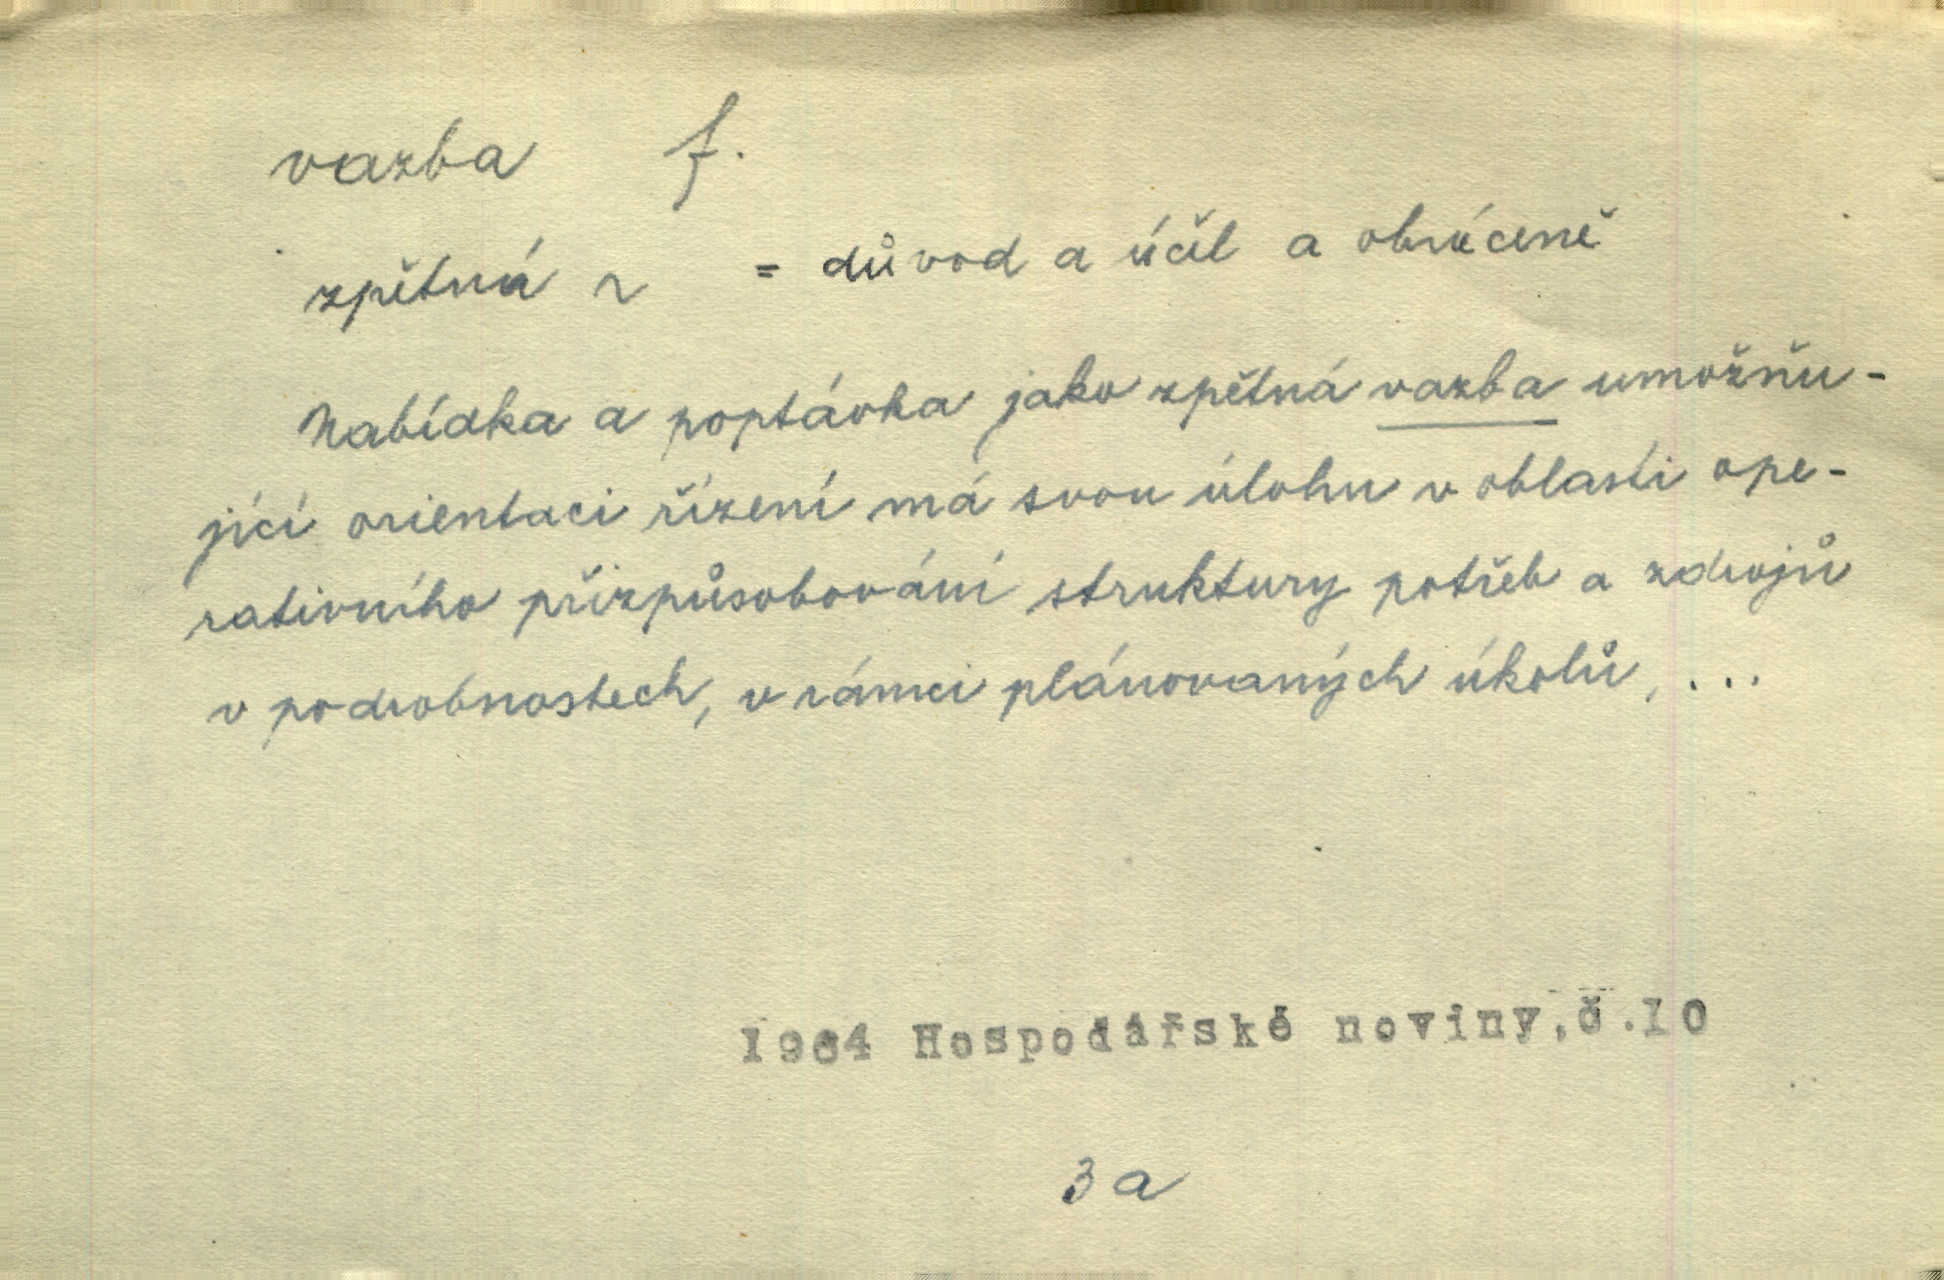 vazba f.
zpětná ~ = důvod a účel a obráceně
Nabídka a poptávka jako zpětná vazba umožňu-
jící orientaci řízení má svou úlohu v oblasti ope-
rativního přizpůsobování struktury potřeb a zdrojů
v podrobnostech, v rámci plánovaných úkolů, ...
1964 Hospodářské noviny,č.10
3a